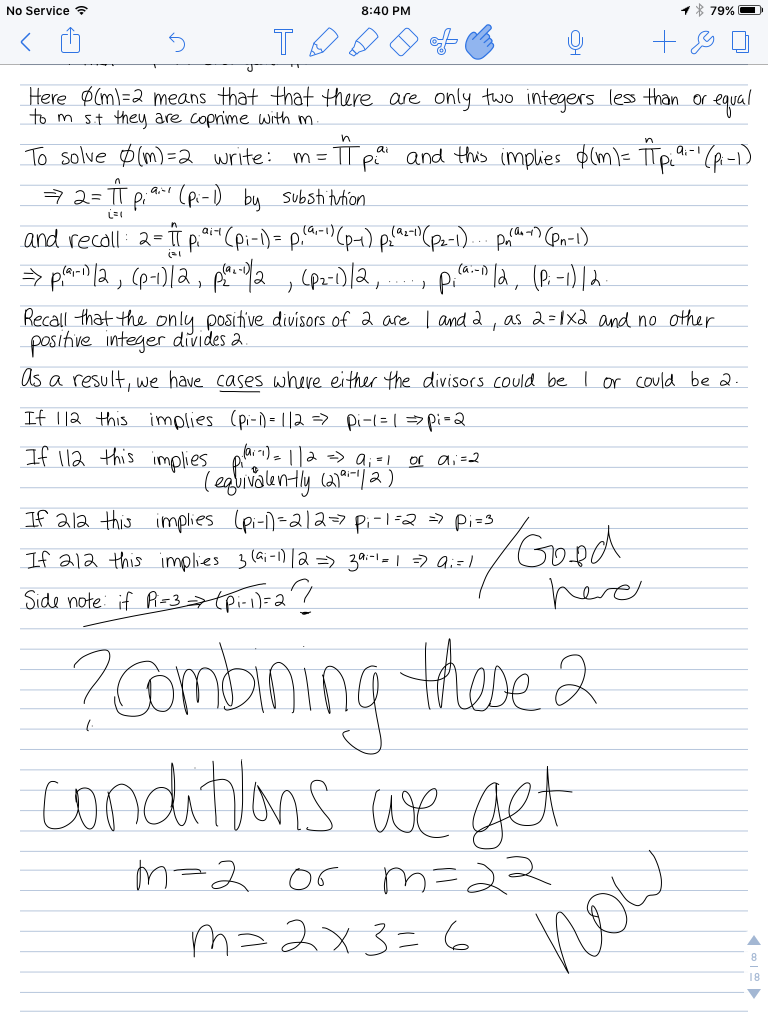 No Service 8:40 PM 79%
Here ϕ(m)=2 means that that there are only two integers less than or equal
to m s.t they are coprime with m.
To solve ϕ(m)=2 write: m = ∏^n p_i^{a_i} and this implies ϕ(m)= ∏^n p_i^{a_i-1} (p_i-1)
⇒ 2 = ∏_{i=1}^n p_i^{a_i-1} (p_i-1) by substitution
and recall: 2 = ∏_{i=1}^n p_i^{a_i-1} (p_i-1) = p_1^{(a_1-1)} (p-1) p_2^{(a_2-1)} (p_2-1) ... p_n^{(a_n-1)} (p_n-1)
⇒ p_1^{(a_1-1)}|2 , (p-1)|2 , p_2^{(a_2-1)}|2 , (p_2-1)|2 , ...., p_i^{(a_i-1)}|2, (p_i-1)|2.
Recall that the only positive divisors of 2 are 1 and 2, as 2=1x2 and no other
positive integer divides 2.
As a result, we have cases where either the divisors could be 1 or could be 2.
If 1|2 this implies (p_i-1)=1|2 ⇒ p_i-1=1 ⇒ p_i=2
If 1|2 this implies p_i^{(a_i-1)}=1|2 ⇒ a_i=1 or a_i=2
(equivalently (2)^{a_i-1}|2)
If 2|2 this implies (p_i-1)=2|2 ⇒ p_i-1=2 ⇒ p_i=3
If 2|2 this implies 3^{(a_i-1)}|2 ⇒ 3^{a_i-1}=1 ⇒ a_i=1
/ Good
here
Side note: if p_i=3 ⇒ (p_i-1)=2 ?
? Combining these 2
conditions we get
m=2 or m=2^2
m=2×3=6
now
8
18